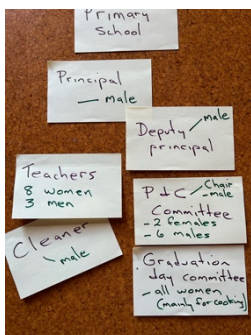 Primary
School
Principal
— male
Deputy — male
principal
Teachers
8 women
3 men
P & C — Chair
- male
Committee
- 2 females
- 6 males
Cleaner
— male
Graduation
day committee
- all women
(mainly for cooking)